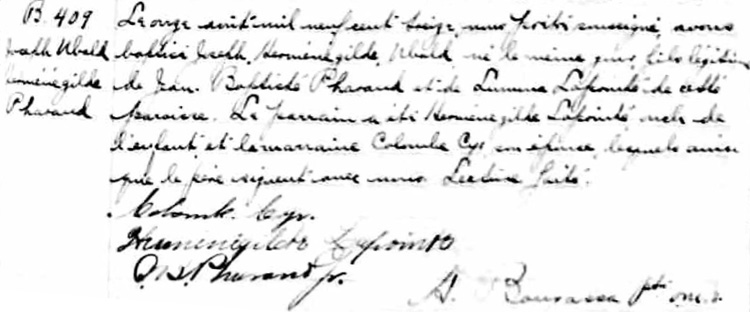 B. 409
Joseph Ubald
Herménégilde
Pharand
Le onze août mil neuf cent seize, nous prêtre soussigné, avons
baptisé Joseph, Herménégilde, Ubald né le même jour, fils légitime
de Jean-Baptiste Pharand et de Lumina Lapointe de cette
paroisse. Le parrain a été Herménégilde Lapointe oncle de
l'enfant, et la marraine Colombe Cyr, son épouse, lesquels ainsi
que le père signent avec nous. Lecture faite.
Colombe Cyr.
Herménégilde Lapointe
J. B. Pharand jr.
A. Bourassa ptre